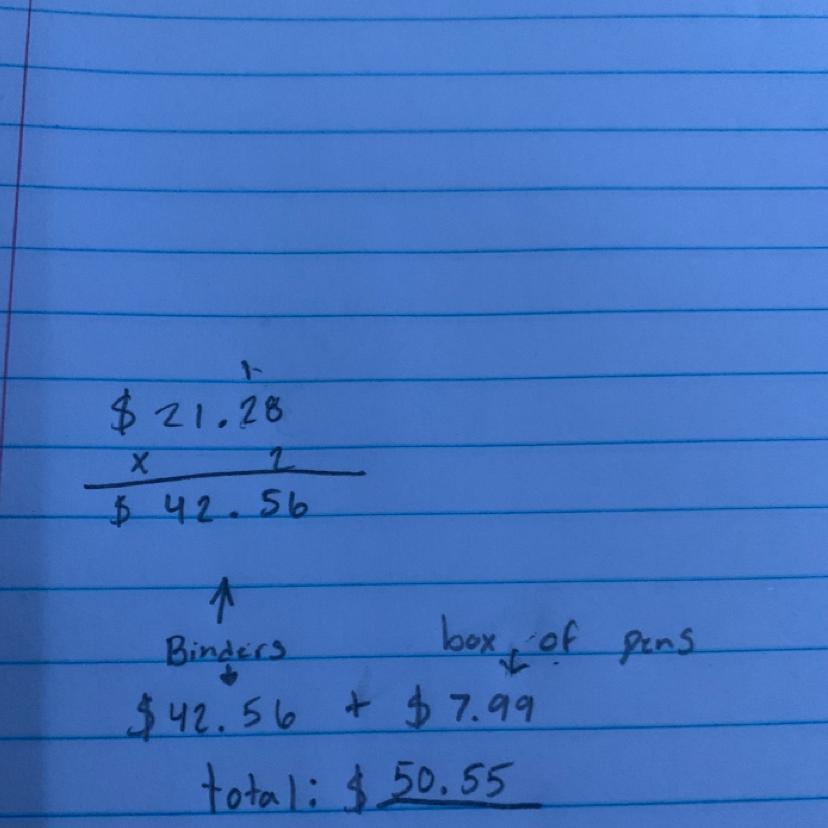 1
$ 21.28
x 2
$ 42.56
↑
Binders box of pens
↓ ↓
$42.56 + $7.99
total: $ 50.55